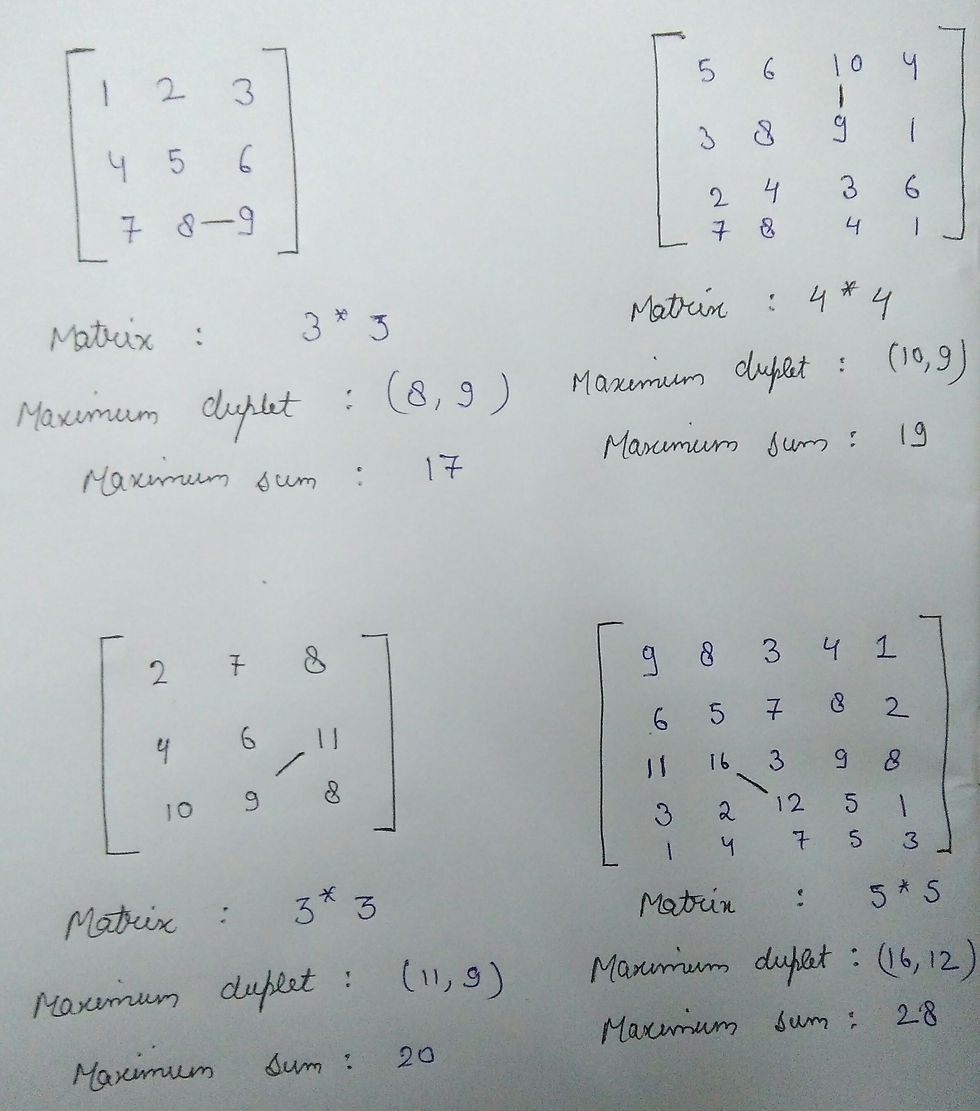 1 2 3
4 5 6
7 8 9
Matrix : 3 * 3
Maximum duplet : (8, 9)
Maximum sum : 17
5 6 10 4
3 8 9 1
2 4 3 6
7 8 4 1
Matrix : 4 * 4
Maximum duplet : (10, 9)
Maximum sum : 19
2 7 8
4 6 11
10 9 8
Matrix : 3 * 3
Maximum duplet : (11, 9)
Maximum sum : 20
9 8 3 4 1
6 5 7 8 2
11 16 3 9 8
3 2 12 5 1
1 4 7 5 3
Matrix : 5 * 5
Maximum duplet : (16, 12)
Maximum sum : 28